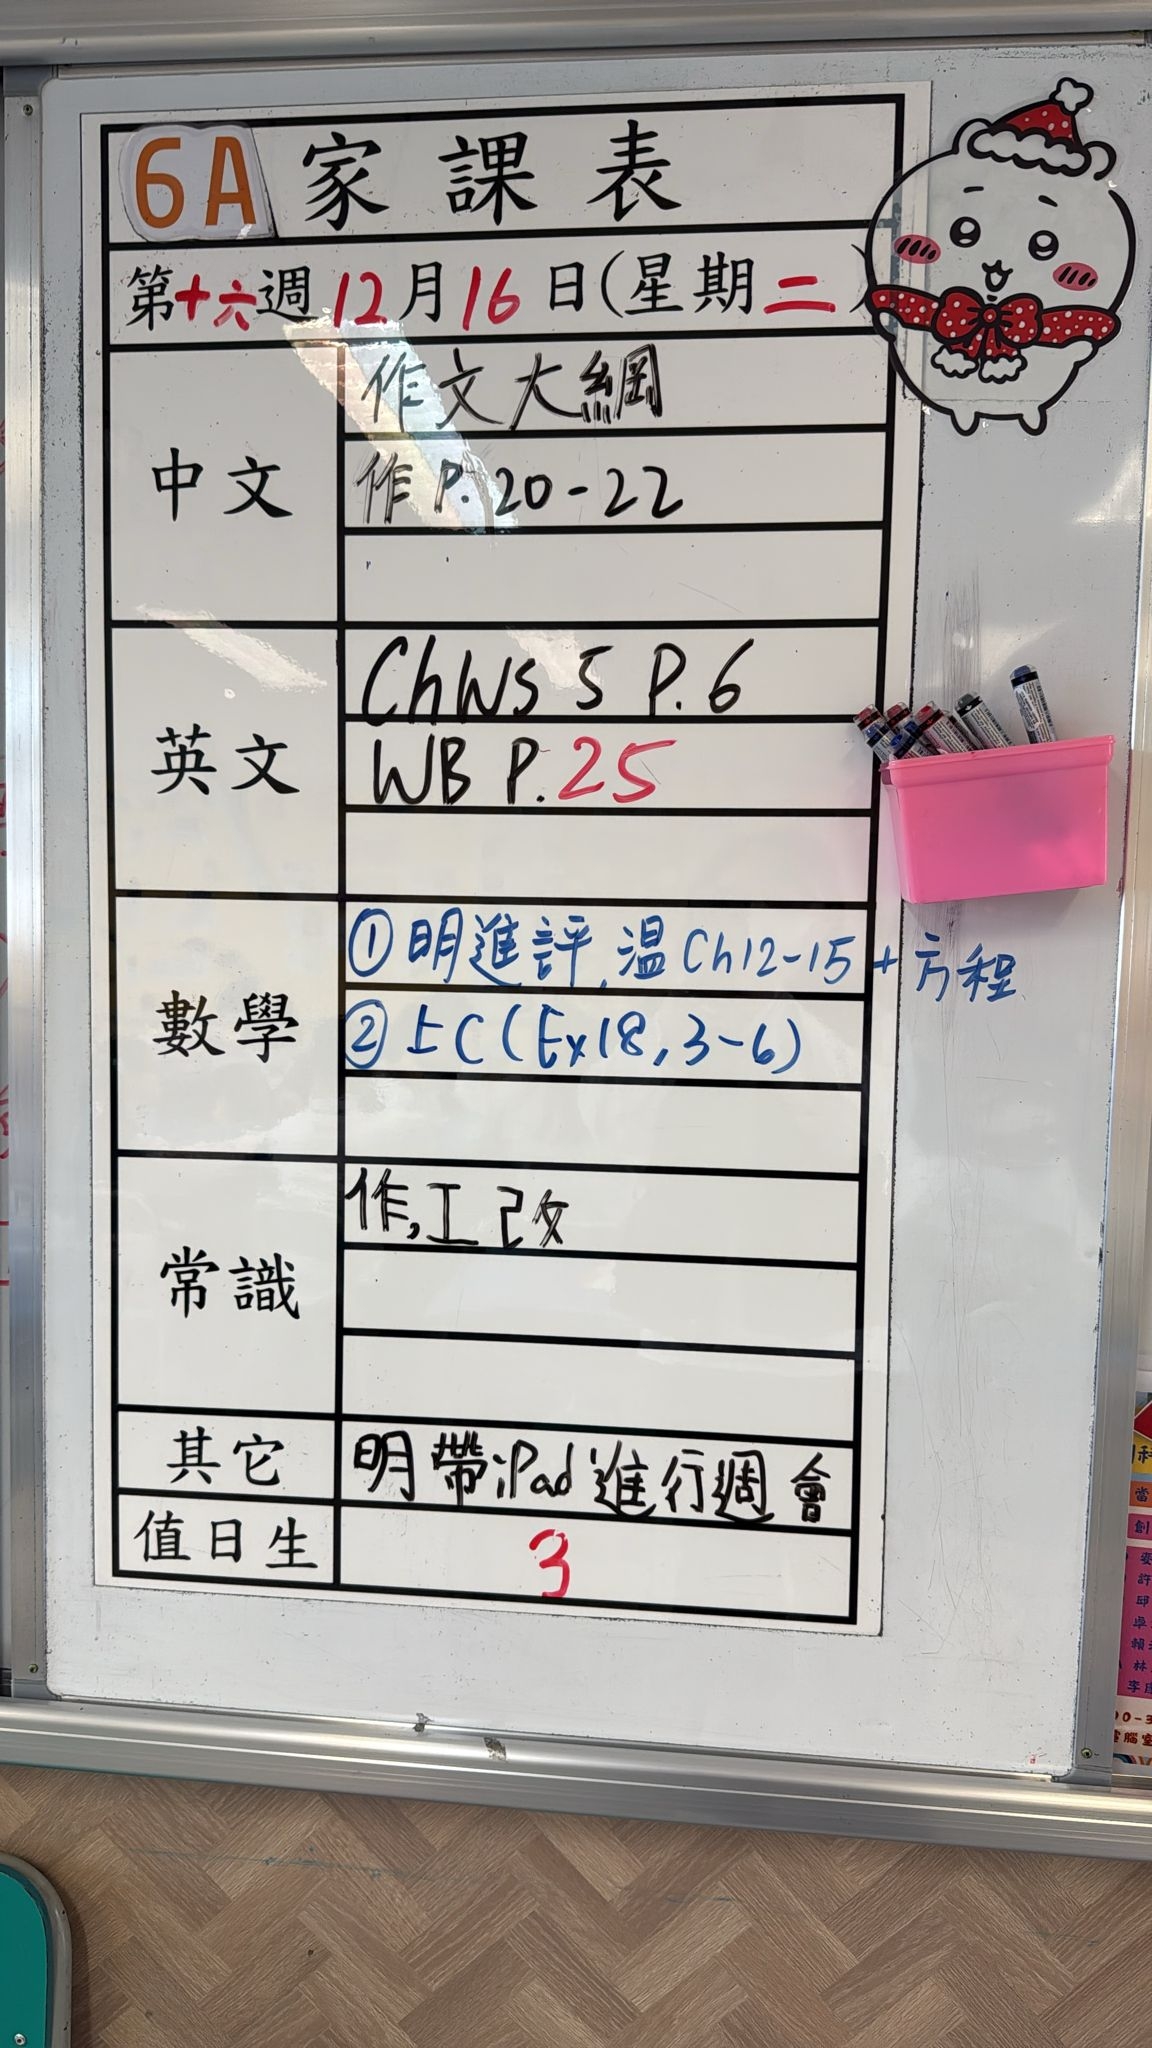 6A 家課表
第十六週 12月16日(星期二)
中文
作文大綱
作 P. 20-22
英文
ChWs 5 P. 6
WB P. 25
數學
①明進評,溫Ch12-15 + 方程
②上C(Ex18, 3-6)
常識
作,工改
其它
明帶iPad進行週會
值日生
3